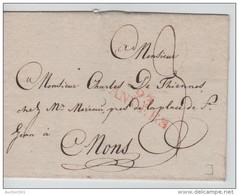 Monsieur
Monsieur Charles De Thiennes
chez Mr Moreau, près de la place de St
Jean à
Mons